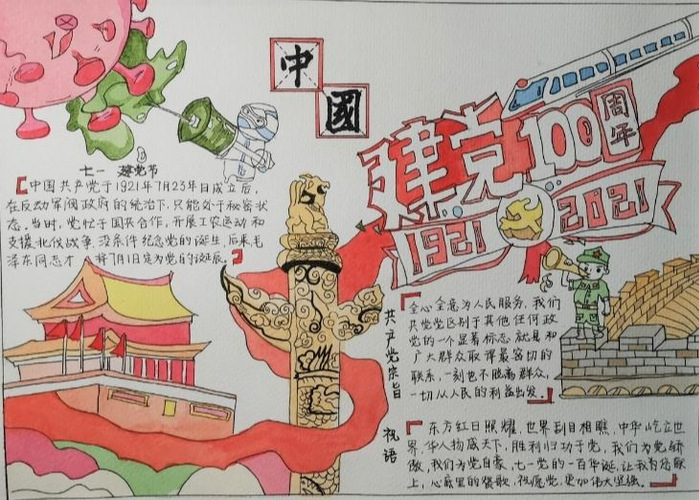 中
國
建党100
周年
1921
2021
七一 建党节
中国共产党于1921年7月23年日成立后,
在反动军阀政府的统治下,只能处于秘密状
态。当时,党忙于国共合作,开展工农运动和
支援北伐战争,没条件纪念党的诞生,后来毛
泽东同志才 将7月1日定为党的诞辰。
共产党宗旨
全心全意为人民服务,我们
共党党区别于其他任何政
党的一个显著标志,就是和
广大群众取得最密切的
联系,一刻也不脱离群众,
一切从人民的利益出发。
祝语
东方红日照耀,世界刮目相瞧,中华屹立世
界,华人扬威天下,胜利归功于党,我们为党骄
傲,我们为党自豪,七一党的一百华诞,让我为您献
上,心底里的赞歌,祝愿党,更加伟大坚强。